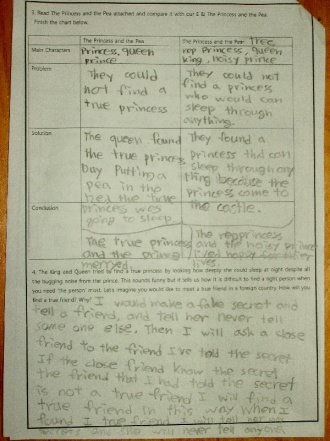 3. Read The Princess and the Pea attached and compare it with our E & The Princess and the Pea.
Finish the chart below.
The Princess and the Pea
The Princess and the Pea Tree
Main Characters
Princess, queen
prince
Princess, queen
king, noisy prince
Problem
They could
not find a
true princess
They could not
find a princess
who would can
sleep through
anything.
Solution
The queen found
the true princess
bay putting a
pea in the
bed the true
princess was
going to sleep
They found a
princess that can
sleep through any
thing because the
princess come to
the castle.
Conclusion
The true princess
and the prince
merryed
The
and the noisy prince
lived happy for after
4. The King and Queen tried to find a true princess by making how deeply she could sleep at night despite all
the bugging noise from the prince. This sounds funny but it tells us how it is difficult to find a right person when
you need the person most. Let's imagine you would like to meet a true friend in a foreign country. How will you
find a true friend? Why?
I would make a fake secret and
tell a friend, and tell her never tell
some one else. Then I will ask a close
friend to the friend I've told the secret
If the close friend know the secret
the friend that I had told the secret
is not a true friend I will find a
true friend in this way when I
found I true friend
will never tell anyone